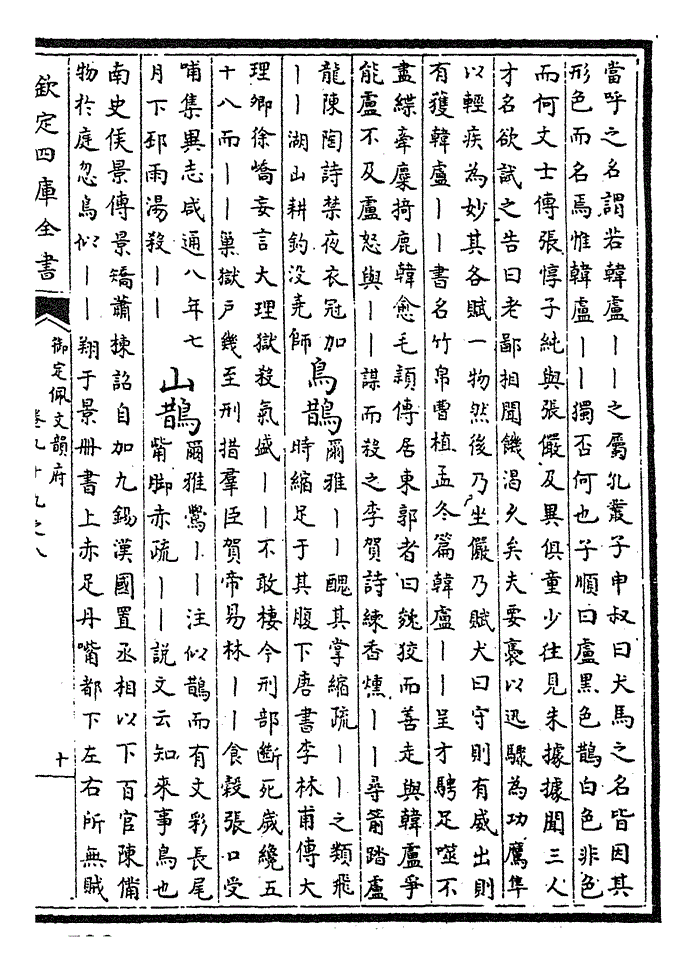 當呼之名謂若韓盧丨丨之屬孔叢子申叔曰犬馬之名皆因其
形色而名焉惟韓盧丨丨獨否何也子順曰盧黑色鵲白色非色
而何文士傳張惇子純與張儼及異俱童少往見朱據據聞三人
才名欲試之告曰老鄙相聞饑渴久矣夫要褭以迅驟為功鷹隼
以輕疾為妙其各賦一物然後乃坐儼乃賦犬曰守則有威出則
有獲韓盧丨丨書名竹帛曹植孟冬篇韓盧丨丨呈才騁足噬不
盡緤牽麋掎鹿韓愈毛穎傳居東郭者曰㕙狡而善走與韓盧爭
能盧不及盧怒與丨丨謀而殺之李賀詩練香燻丨丨尋箭踏盧
龍陳陶詩禁夜衣冠加
丨丨湖山耕釣没堯師
鳥鵲
爾雅丨丨醜其掌縮疏丨丨之類飛
時縮足于其腹下唐書李林甫傳大
理卿徐嶠妄言大理獄殺氣盛丨丨不敢棲今刑部斷死歲纔五
十八而丨丨巢獄戶幾至刑措羣臣賀帝易林丨丨食穀張口受
哺集異志咸通八年七
月下邳雨湯殺丨丨
山鵲
爾雅鷽丨丨注似鵲而有文彩長尾
觜脚赤疏丨丨説文云知來事鳥也
南史侯景傳景矯蕭揀詔自加九錫漢國置丞相以下百官陳備
物於庭忽鳥似丨丨翔于景册書上赤足丹嘴都下左右所無賊
欽定四庫全書
御定佩文韻府
卷九十九之八
十